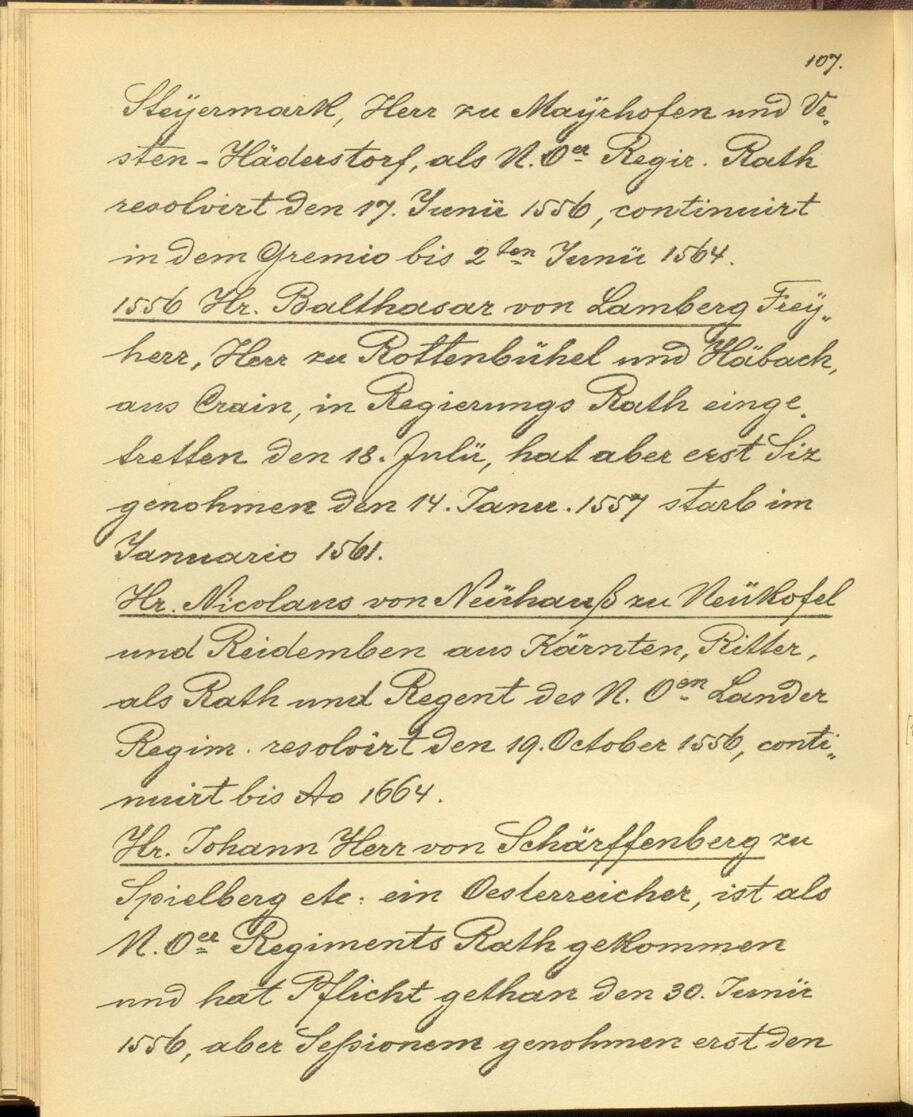 107.
Steÿermark, Herr zu Maÿrhofen und Ve„
sten-Häderstorf, als N. Oer Regir. Rath
resolvirt den 17. Junii 1556, continuirt
in dem Gremio bis 2ten Junii 1564.
1556 Hr. Balthasar von Lamberg Freÿ„
herr, Herr zu Rottenbühel und Häbach,
aus Crain, in Regierungs Rath einge„
tretten den 18. Julii, hat aber erst Siz
genohmen den 14. Janu. 1557 starb im
Januario 1561.
Hr. Nicolaus von Neühauß zu Neükofel
und Reidemben aus Kärnten, Ritter,
als Rath und Regent des N. Oen Lander
Regim. resolvirt den 19. October 1556, conti„
nuirt bis Ao 1664.
Hr. Johann Herr von Schärffenberg zu
Spielberg etc: ein Oesterreicher, ist als
N. Oer Regiments Rath gekommen
und hat Pflicht gethan den 30. Junii
1556, aber Seßionem genohmen erst den